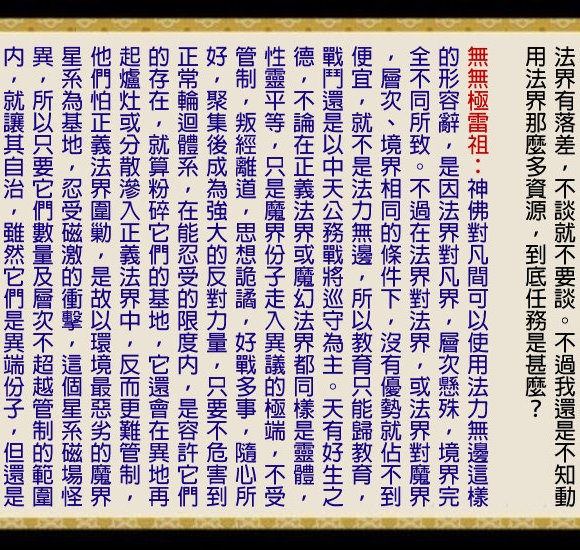 法界有落差，不談就不要談。不過我還是不知動
用法界那麼多資源，到底任務是甚麼？
無無極雷祖：神佛對凡間可以使用法力無邊這樣
的形容辭，是因法界對凡界，層次懸殊，境界完
全不同所致。不過在法界對法界，或法界對魔界
，層次、境界相同的條件下，沒有優勢就佔不到
便宜，就不是法力無邊，所以教育只能歸教育，
戰鬥還是以中天公務戰將巡守為主。天有好生之
德，不論在正義法界或魔幻法界都同樣是靈體，
性靈平等，只是魔界份子走入異議的極端，不受
管制，叛經離道，思想詭譎，好戰多事，隨心所
好，聚集後成為強大的反對力量，只要不危害到
正常輪迴體系，在能忍受的限度內，是容許它們
的存在，就算粉碎它們的基地，它還會在異地再
起爐灶或分散滲入正義法界中，反而更難管制，
他們怕正義法界圍勦，是故以環境最惡劣的魔界
星系為基地，忍受磁激的衝擊，這個星系磁場怪
異，所以只要它們數量及層次不超越管制的範圍
內，就讓其自治，雖然它們是異端份子，但還是